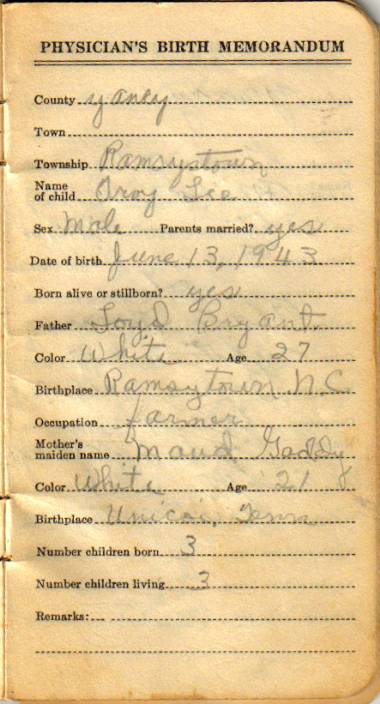 PHYSICIAN'S BIRTH MEMORANDUM
County yancy
Town
Township Ramsytown
Name
of child Oroy Lee
Sex Male Parents married? yes
Date of birth June 13, 1943
Born alive or stillborn? yes
Father Loyd Bryant
Color White Age 27
Birthplace Ramsytown N.C.
Occupation farmer
Mother's
maiden name Maud Gaddy
Color White Age 21
Birthplace Unicoi, Tenn
Number children born 3
Number children living 3
Remarks: